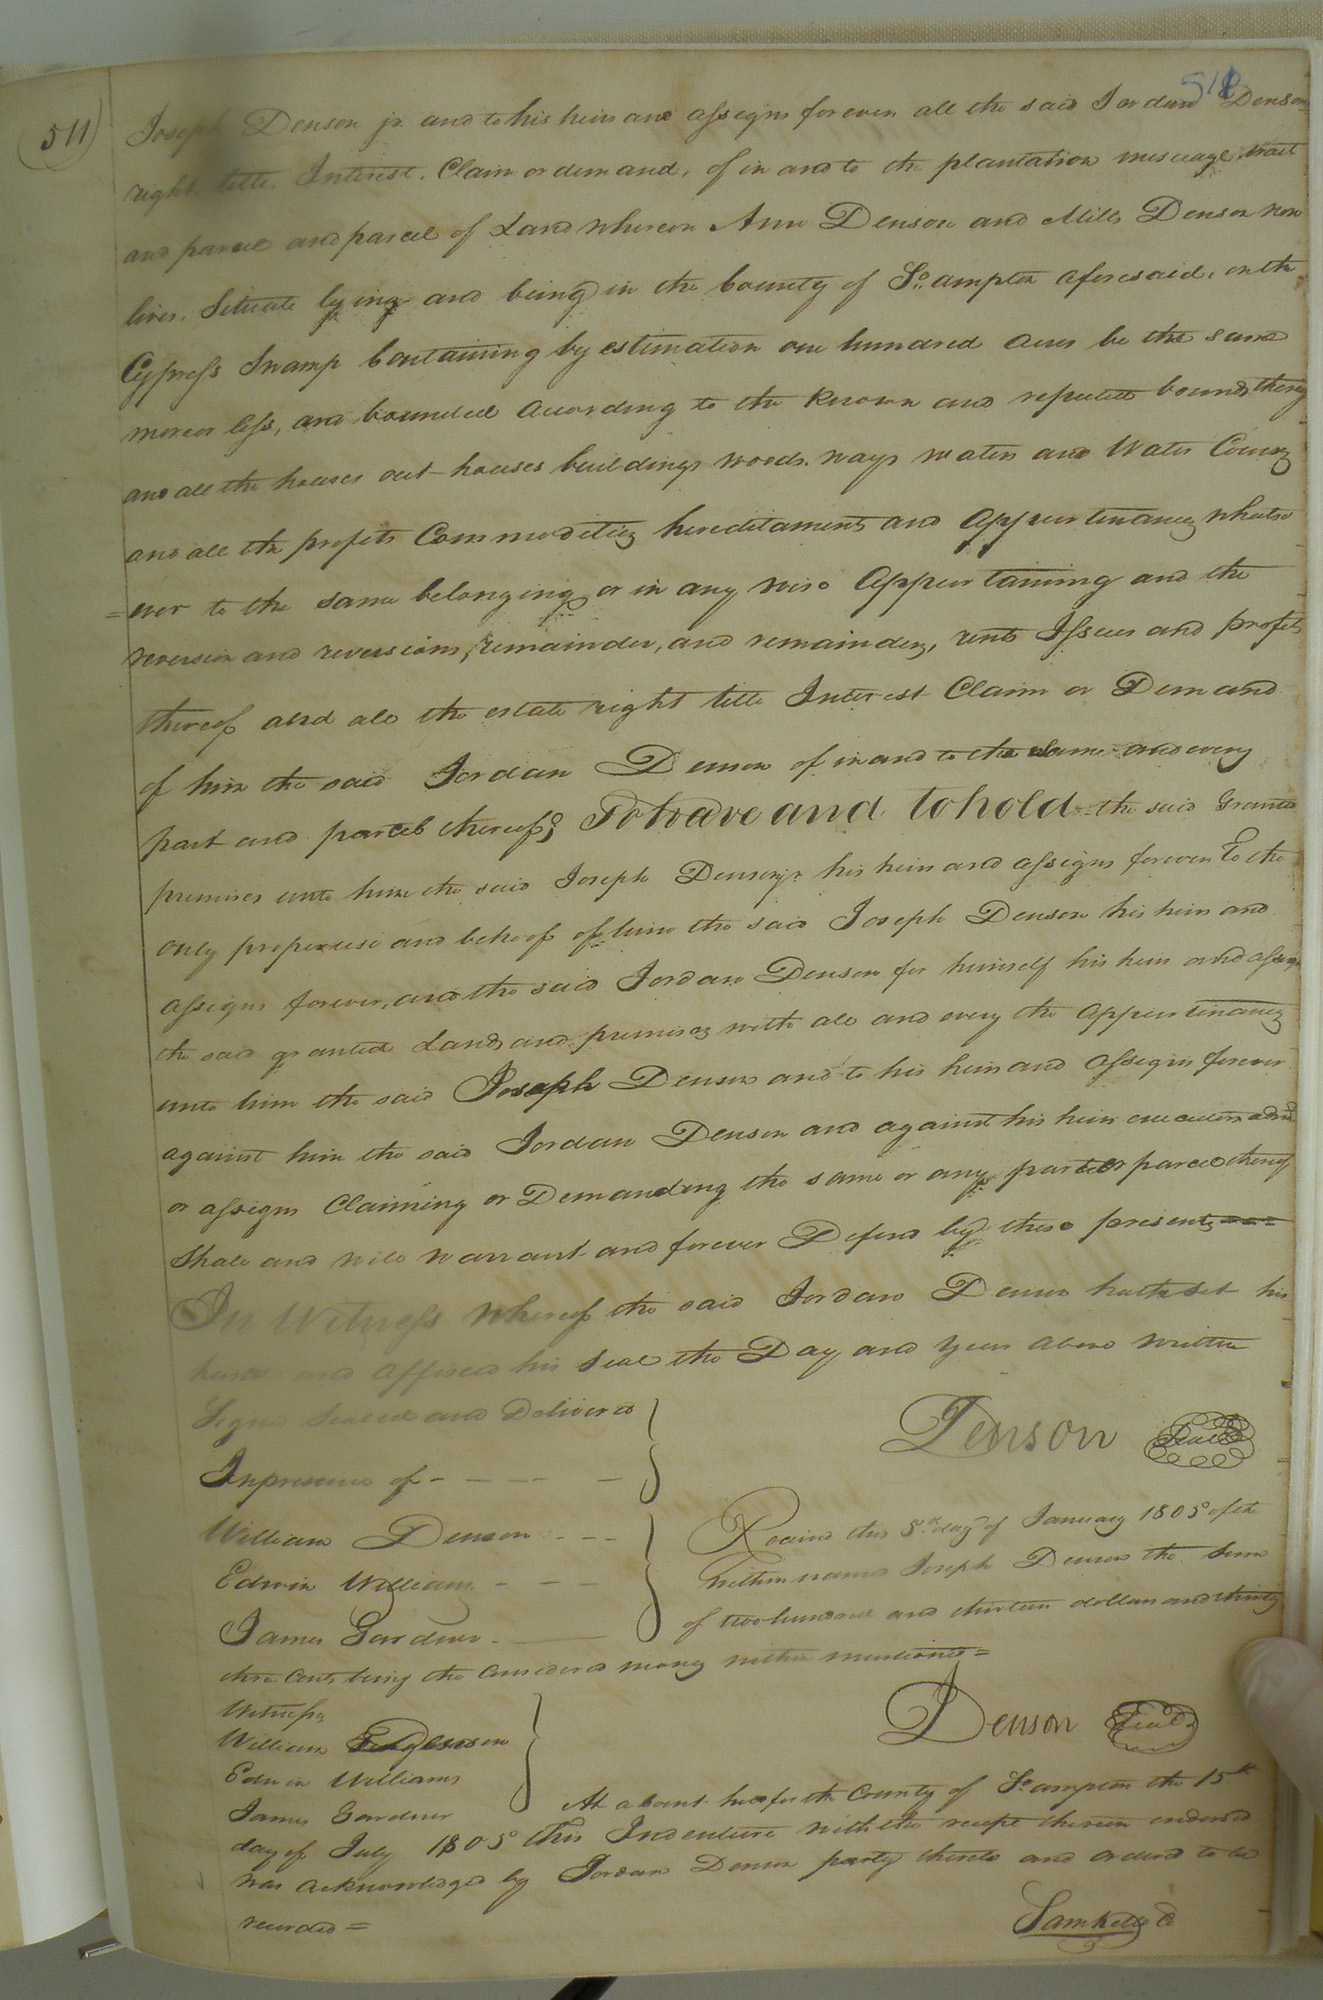 511
518
Joseph Denson jr. and to his heirs and assigns forever all the said Jordan Denson
right title. Interest. Claim or demand, of in and to the plantation messuage tract
and parcel and parcel of Land whereon Ann Denson and Mills Denson now
lives. Situate lying and being in the County of So. ampton aforesaid. on the
Cypress Swamp Containing by estimation one hundred acres be the same
more or less, and bounded According to the Known and reputed bounds thereof
and all the houses out houses buildings woods. ways waters and Water Courses
and all the profits Commodities hereditaments and Appurtenances whatso
=ever to the same belonging or in any wise Appurtaining and the
reversion and reversions, remainder, and remainders, rents Issues and profits
thereof and all the estate right title Interest Claim or Demand
of him the said Jordan Denson of in and to the same and every
part and parcel thereof; To have and to hold the said Granted
premises unto him the said Joseph Denson jr his heirs and assigns forever To the
only proper use and behoof of him the said Joseph Denson his heirs and
assigns forever, and the said Jordan Denson for himself his heirs and assigns
the said granted Lands and premises with all and every the appurtenances
unto him the said Joseph Denson and to his heirs and assigns forever
against him the said Jordan Denson and against his heirs executors admrs
or assigns Claiming or Demanding the same or any part or parcel thereof
Shall and will warrant and forever Defend by these presents
In Witness whereof the said Jordan Denson hath set his
hand and affixed his Seal the Day and Year above written
Signed Sealed and Delivered
In presence of - - - - -
Denson Seal
William Denson - - -
Edwin Williams - - -
James Gardner - -
Received this 5th day of January 1805 of the
within named Joseph Denson the Sum
of two hundred and thirteen dollars and thirty
three Cents being the Considered money within mentioned =
Witness
William Denson
Edwin Williams
James Gardner
Denson Seal
At a Court held for the County of So. ampton the 15th
day of July 1805 This Indenture with the receipt thereon endorsed
was acknowledged by Jordan Denson party thereto and ordered to be
recorded =
Sam Kello C